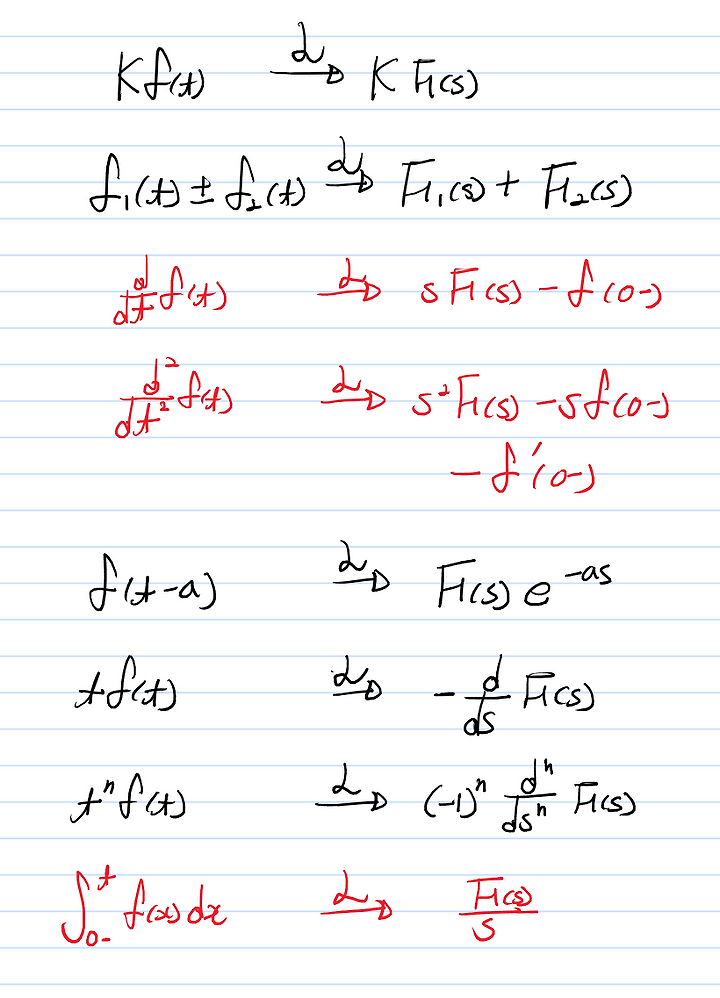 Kf(t) ℒ→ K F(s)
f₁(t) ± f₂(t) ℒ→ F₁(s) + F₂(s)
d/dt f(t) ℒ→ sF(s) - f(0-)
d²/dt² f(t) ℒ→ s²F(s) - sf(0-)
- f'(0-)
f(t-a) ℒ→ F(s) e^(-as)
tf(t) ℒ→ - d/ds F(s)
tⁿf(t) ℒ→ (-1)ⁿ dⁿ/dsⁿ F(s)
∫₀₋ᵗ f(x)dx ℒ→ F(s)/s